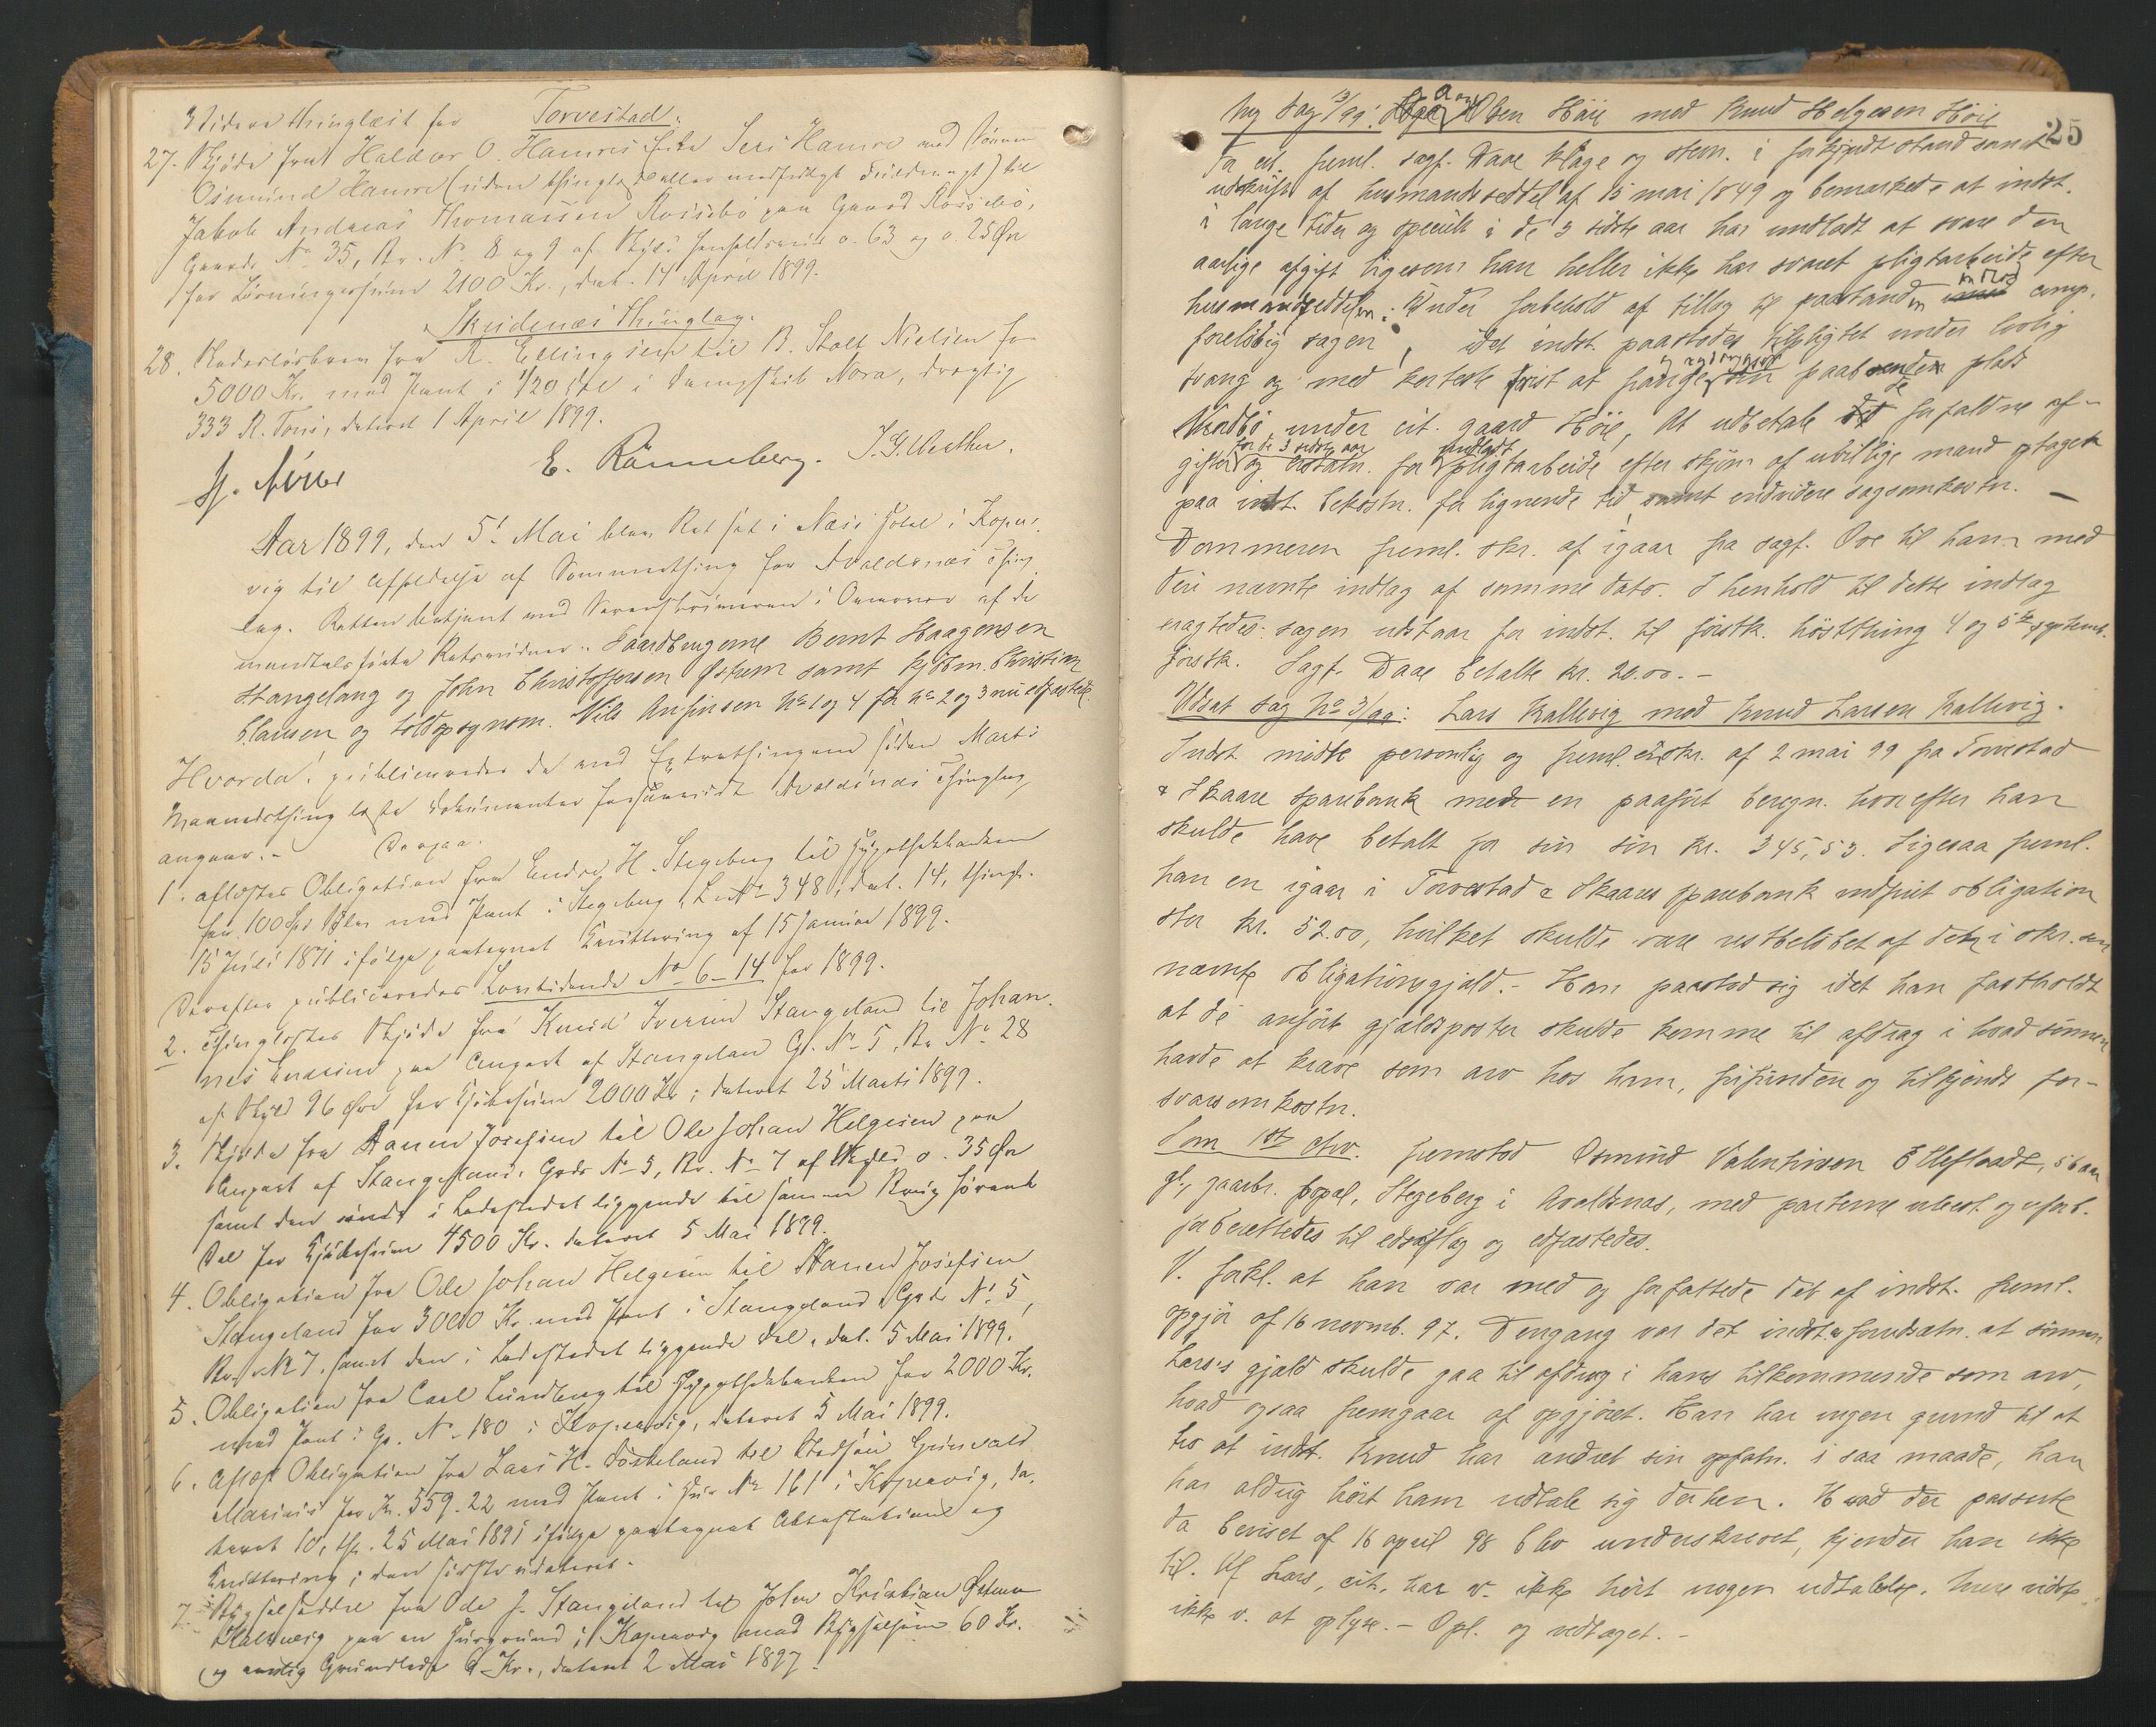 Videre thinglæst for Torvestad:
27. Skjöde fra Haldor O. Hamre Enke Seri Hamre med Sönnen
Osmund Hamre (uden thinglæst eller medfulgt Fuldmagt) til
Jakob Andreas Thomassen Rossebö paa Gaard Rossebö,
Gaards No 35, Br. No 8 og 9 af Skyld henholdsvis o. 63 og o. 25 Øre
for Lösningssum 2100 Kr., dat. 14 April 1899.
Skudenæs Thinglag.
28. Kaderlösbrev fra R. Ellingsen til B. Stolt Nielsen for
5000 Kr. med Pant i 1/20 Del i Dampskib Nora, drægtig
333 R. Tons, dateret 1 April 1899.
E. Rönneberg. J. G. Wester.
Aar 1899, den 5t Mai blev Ret sat i Næss Hotel i Koper-
vig til Afholdelse af Sommerthing for Avaldsnæs Thing
lag. Retten betjent med Sorenskriveren i Overvær af de
mandtalsförte Retsvidner: Gaardbrugerne Bernt Haagensen
Stangelang og John Christoffersen Østrem samt kjöbm. Christian
Clausen og toldopsynsm. Nils Anfinsen No 1 og 4 for No 2 og 3 nu edfæstede.
Hvorda! publiceredes de ved Extrathingene siden Marts
Maanedsthing læste Dokumenter forsaavidt Avaldsnæs Thinglag
angaar.- Derpaa.
1. aflæstes Obligation fra Endre H. Stegeberg til Hypothekbanken
for 100 Spd. med Pant i Stegeberg, L. No 348, dat. 14, thingl.
15 Juli 1871 ifölge paategnet Kvittering af 15 Januar 1899.
Derefter publiceredes Lovtidende No 6-14 for 1899.
2. Thinglæstes Skjöde fra Knud Iversen Stangeland til Johan-
nes Enersen paa Anpart af Stangeland G. No 5, Br. No 28
af Skyld 96 Öre for Kjöbesum 2000 Kr; dateret 25 Marts 1899.
3. Skjöde fra Hanna Josefsen til Ole Johan Helgesen paa
Anpart af Stangeland, Gards No 5, Br. No 7 af Skyld o. 35 Øre
samt den i Ladestedet liggende til samme Brug hörende
Del for Kjöbesum 4500 Kr. dateret 5 Mai 1899.
4. Obligation fra Ole Johan Helgesen til Hanna Josefsen
Stangeland for 3000 Kr. med Pant i Stangeland, Gards No 5,
Br. No 7, samt den i Ladestedet liggende Del, dat. 5 Mai 1899.
5. Obligation fra Carl Lundberg til Hypothekbanken for 2000 Kr.
med Pant i Gr. No 180 i Kopervig, dateret 5 Mai 1899.
6. Aflæst Obligation fra Lars H. Döskeland til Grünvald
Marius for Kr. 559.22 med Pant i Hus No 161 i Kopervig, da-
teret 10, th. 25 Mai 1891 ifölge paategnet Attestation og
Kvittering; den sidste udateret.
7. Bygselseddel fra Ole J. Stangeland til John Kristian Østrem
Kallevig paa en Husgrund i Kopervig mod Bygselsum 60 Kr.
og aarlig Grundleie 6 Kr., dateret 2 Mai 1897.
25
Ny sag 13/99: Aage Olsen Höie mod Knud Helgesen Höie
For cit. freml. sagf. Daae klage og stevn. i forkyndt stand samt
udskrift af husmandsseddel af 15 mai 1849 og bemærkede at indst.
i lange tider og specielt i de 3 sidste aar har undladt at svare den
aarlige afgift ligesom han heller ikke har svaret pligtarbeide efter
husmandseddelen. Under forbehold af tillæg til paastanden indlod comp.
foreløbig sagen, idet indst. paastodes tilpligtet under lovlig
tvang og med korteste frist at fravige og rydiggjøre paaboende plads
under cit. gaard Höie, At udbetale de forfaldne af-
gifter for de 3 sidste aar og erstatn. for undladt pligtarbeide efter skjøn af uvillige mænd optaget
paa indst. bekostn. for lignende tid samt endvidere sagsomkostn. —
Dommeren freml. skr. af igaar fra sagf. Ove til ham med
deri nævnte indlæg af samme dato. I henhold til dette indlæg
eragtedes: sagen udstaar for indst. til förstk. hösthing 4 og 5te septemb.
förstk. Sagf. Daae betalte kr. 20.00. -
Udsat sag No 3/99: Lars Kallevig mod Knud Larsen Kallevig.
Indst. mödte personlig og freml. skr. af 2 mai 99 fra Torvestad
& Skaare sparebank med en paaført beregn. hvorefter han
skulde have betalt for sin sön kr. 345,53. Ligesaa freml.
han en igaar i Torvestad & Skaare sparebank indfriet obligation
stor kr. 52.00, hvilket skulde være restbelöbet af det i skr.
nævnte obligationsgjæld. - Han paastod sig idet han fastholdt
at de anførte gjældsposter skulde komme til afdrag i hvad sönnen
havde at kræve som arv hos ham, frifunden og tilkjendt for-
svarsomkostn.
Som 1ste v. fremstod Osmund Valentinsen Ellefstvedt, 56 aar
gl., gaardbr. bopæl, Stegeberg i Avaldsnæs, med parterne ubesl. og
forberettedes til edsaflæg og edfæstedes.
V. forkl. at han var med og forfattede det af indst. freml.
opgjör af 16 novmb. 97. Dengang var det indst.s forudsætn. at sönnen
Lars's gjæld skulde gaa til afdrag i hans tilkommende som arv,
hvad ogsaa fremgaar af opgjöret. Han har ingen grund til at
tro at indst. Knud har ændret sin opfatn. i saa maade, han
har aldrig hört ham udtale sig derhen. Hvad der passerte
da beviset af 16 april 98 blev underskrevet, kjender han ikke
til. Af Lars, cit., har v. ikke hört nogen udtalelse. mere vidste
ikke v. at oplyse. - Opl. og vedtaget. -